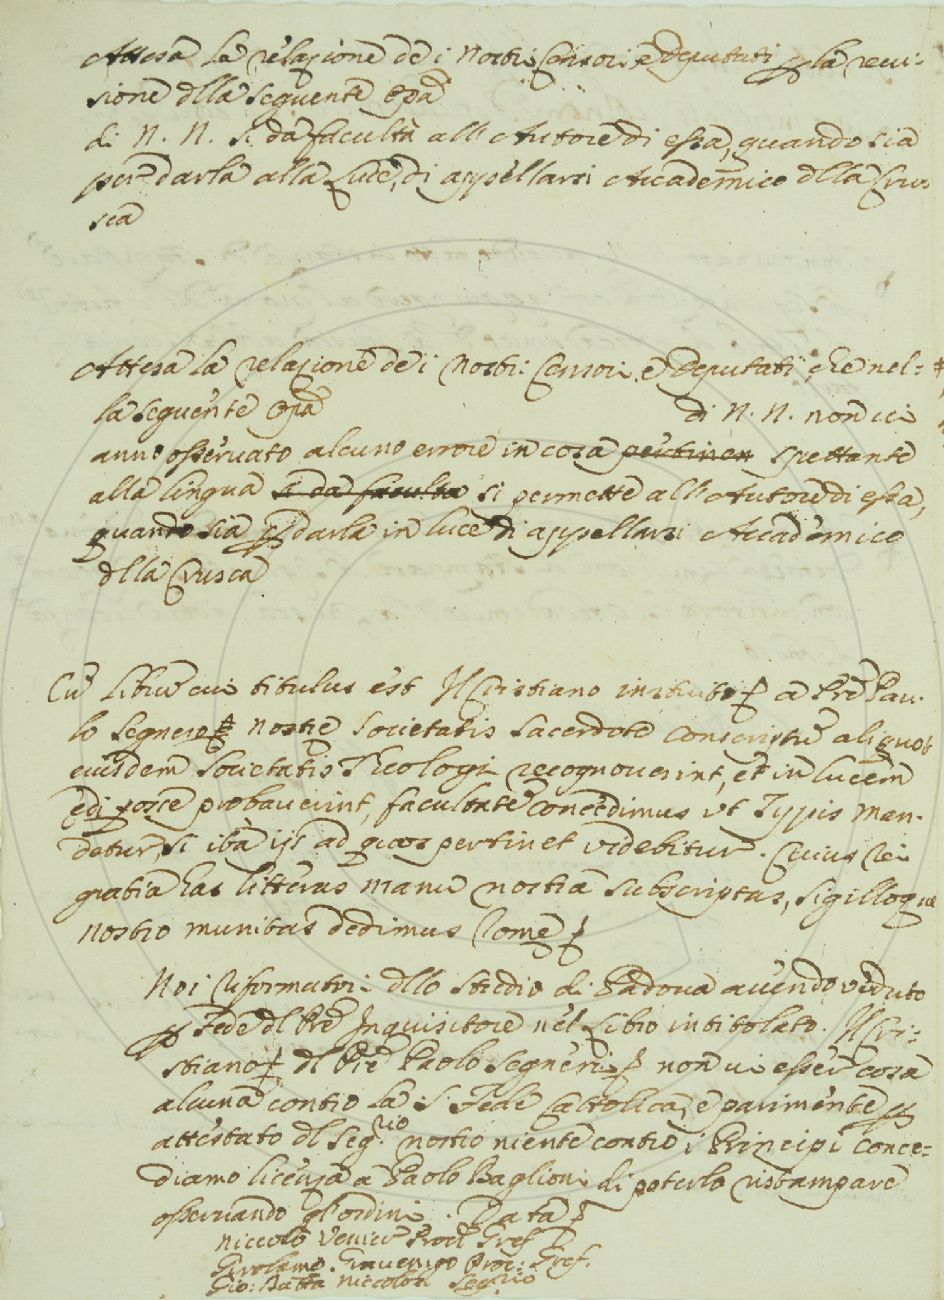 Attesa la relazione de i nostri Censori, e Deputati p la reui-
sione dlla seguente Opa
di N. N. si da facultà all'Autore di essa, quando sia
per darla alla luce, di appellarsi Accademico dlla Crus
sca
Attesa la relazione de i nostri Censori, e Deputati, che nel-
la seguente Opa di N. N. non ui
anno osseruato alcuno errore in cosa pertinen spettante
alla lingua si da faculta si permette all'Autore di essa,
quando sia p darla in luce di appellarsi Accademico
dlla Crusca
Cũ librũ cui titulus est Il Cristiano instruito a Pre Pau-
lo Segnero nostre Societatis sacerdote conscriptũ aliquot
eiusdem Societatis Theologi recognouerint, et in lucem
edi posse probauerint, facultatẽ concedimus vt Typis man-
detur, si iba ijs ad quos pertinet videbitur. Cuius rei
gratia has litteras manu nostra subscriptas, sigilloque
nostro munitas dedimus Rome
Noi Riformatri dllo studio di Padoua auendo ueduto
p Fede dl Pre Inquisitore nel Libro intitolato. Il Cri-
stiano dl Pre Paolo Segneri non ui esser cosa
alcuna contro la S. Fede Cattolica, e parimente p
attestato dl Seg.rio nostro niente contro i Principi conce-
diamo licenza a Paolo Baglioni di poterlo ristampare
osseruando gl'ordini. Data
Niccolò Venier Procr Gref
Girolamo Grauenigo Proc: Gref.
Gio: Batta Niccolosi Seg.rio